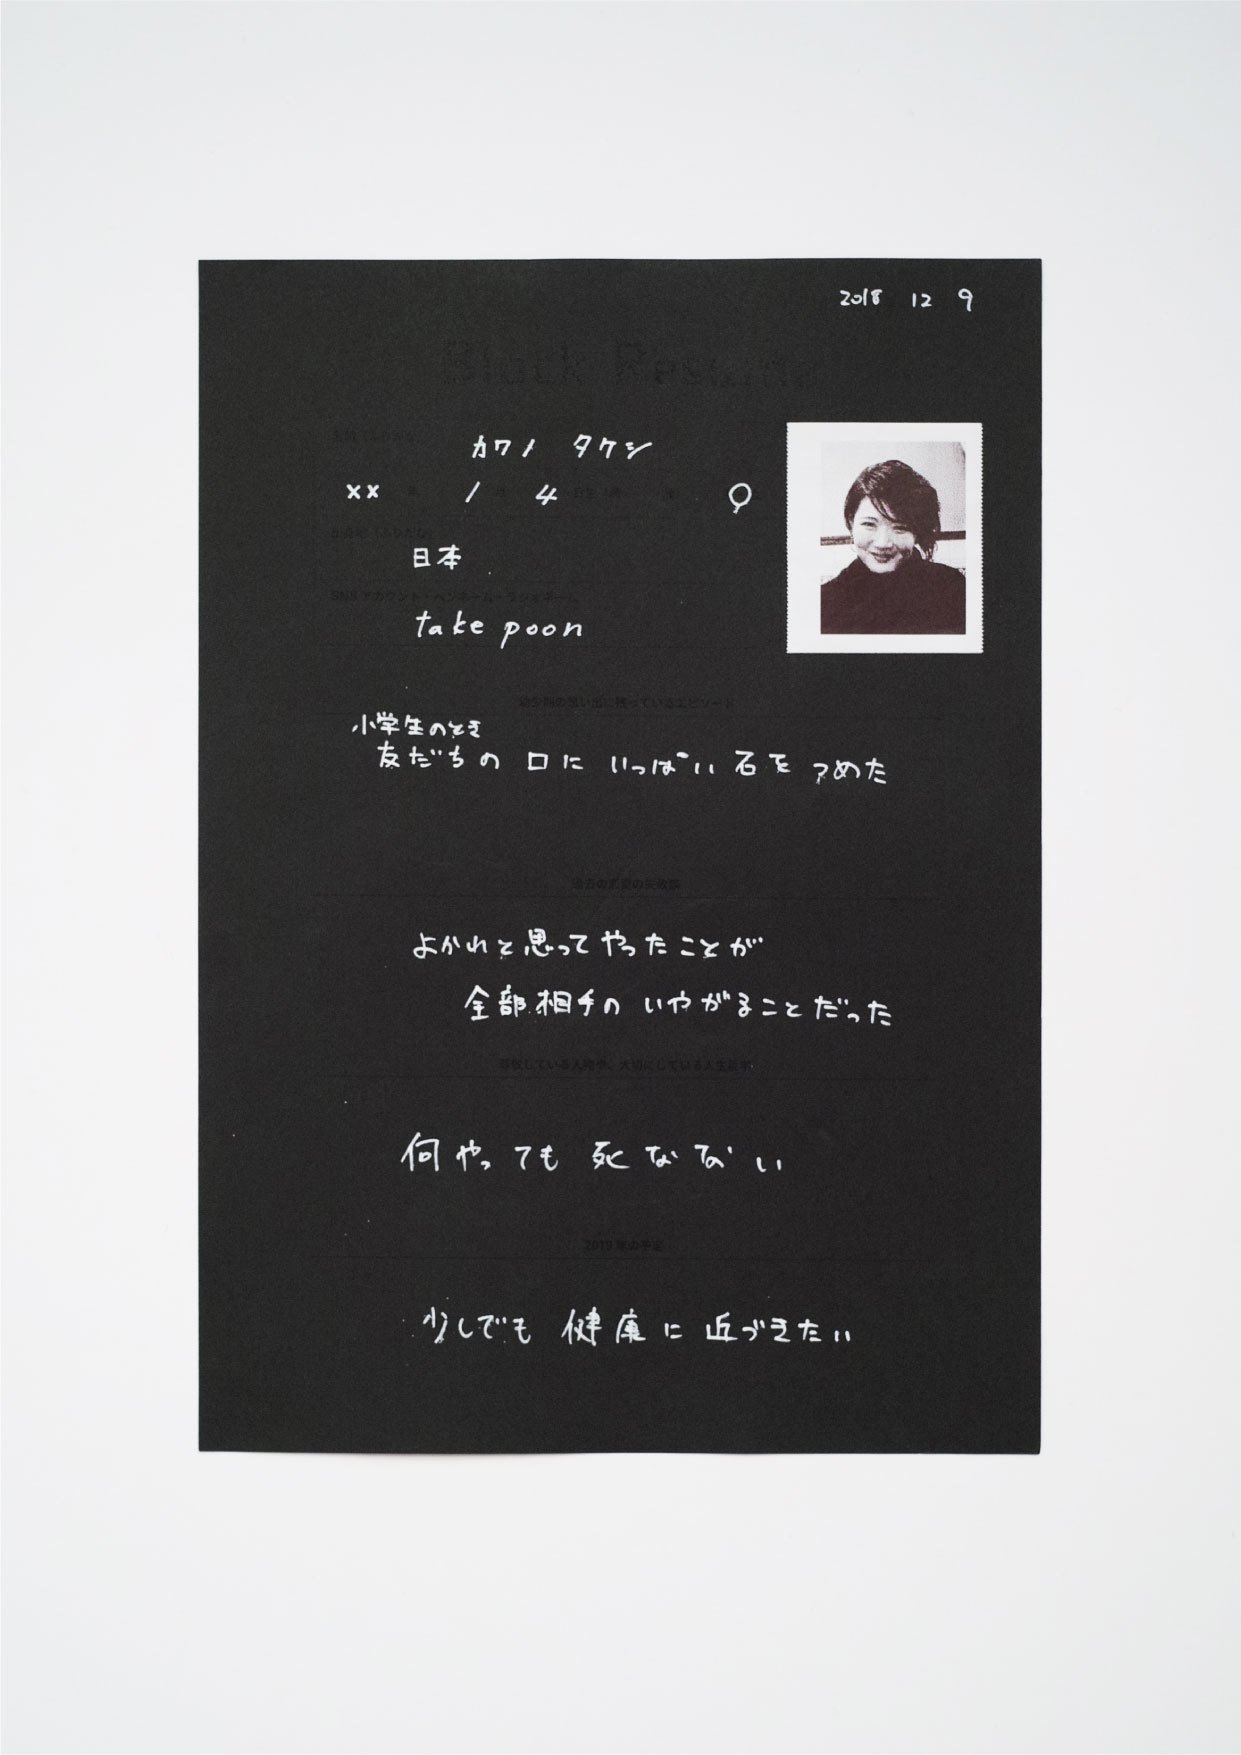 2018 12 9
Black Resume
カワノ タケシ
×× 1 4
日本
SNSアカウント・ペンネーム・ラジオネーム
take poon
幼少期の思い出に残っているエピソード
小学生のとき
友だちの 口に いっぱい 石を つめた
過去の恋愛の失敗談
よかれと思ってやったことが
全部相手の いやがることだった
尊敬している人物や、大切にしている人生哲学
何やっても 死なない
2019年の予定
少しでも 健康に 近づきたい